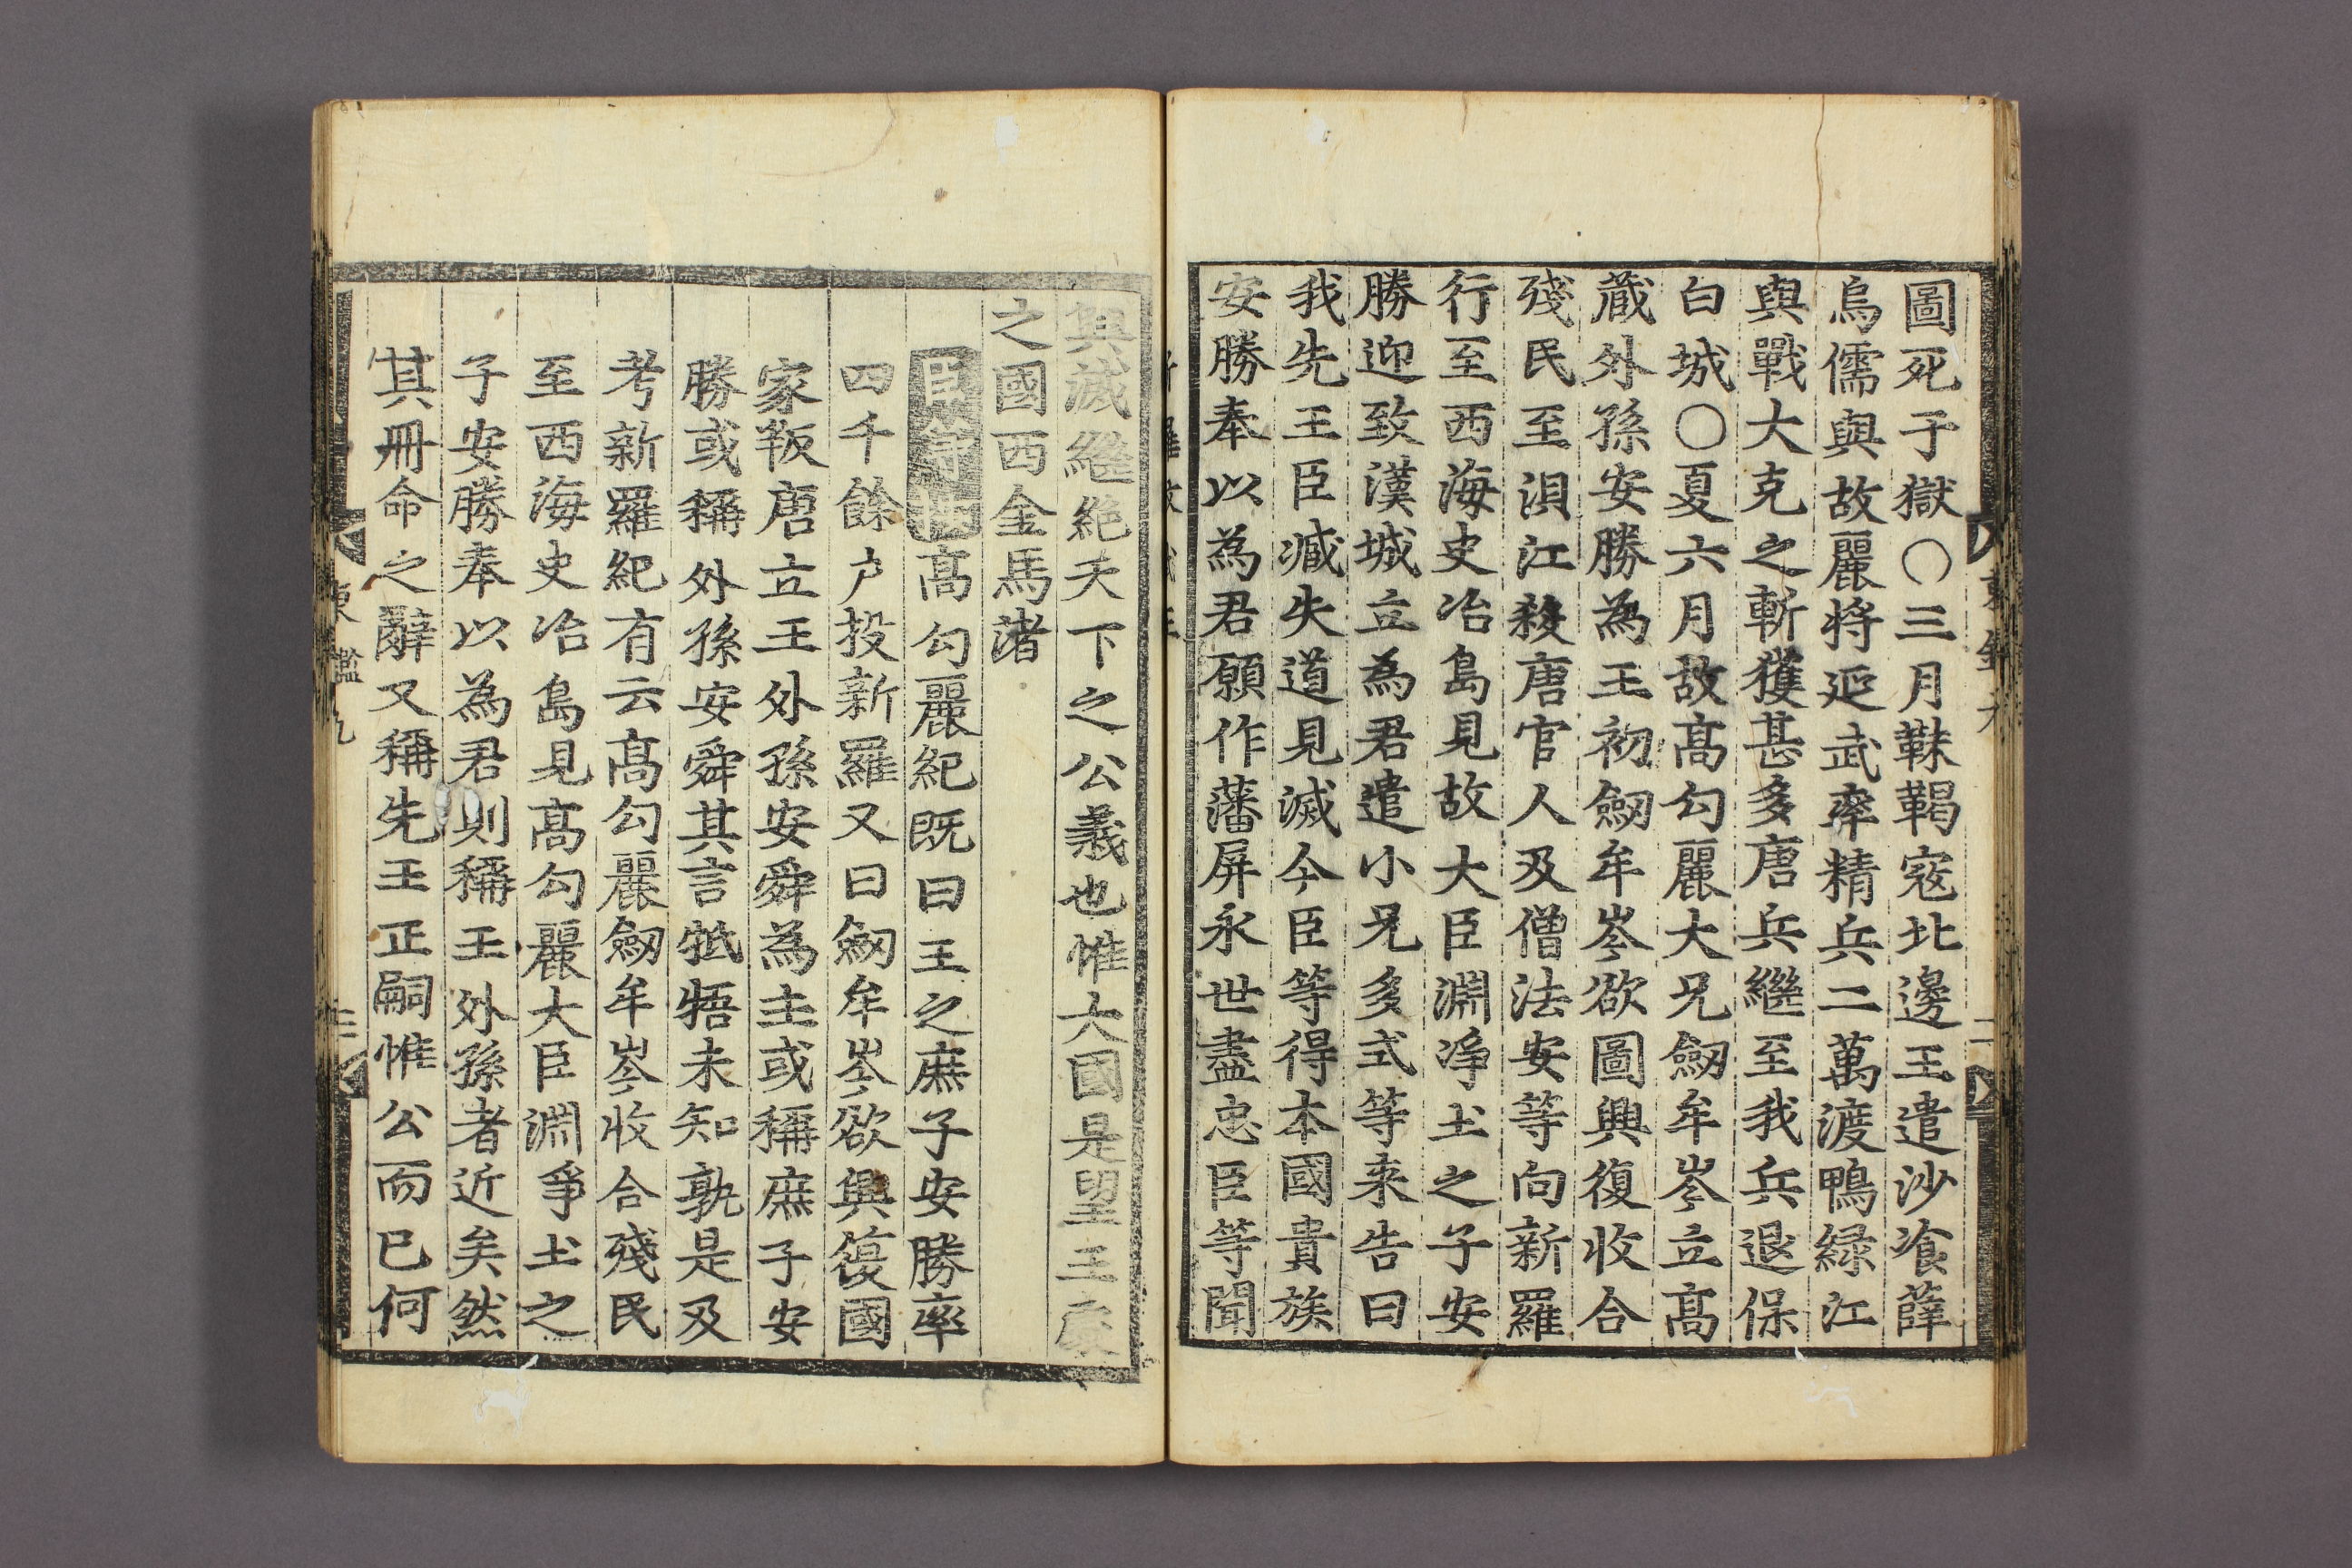 圖死于獄○三月靺鞨寇北邊王遣沙飡薛
烏儒與故麗將延武率精兵二萬渡鴨緑江
與戰大克之斬獲甚多唐兵繼至我兵退保
白城○夏六月故髙勾麗大兄劒牟岑立髙
蔵外孫安勝為王初劒牟岑欲圖興復收合
殘民至浿江殺唐官人及僧法安等向新羅
行至西海史冶島見故大臣淵浄土之子安
勝迎致漢城立為君遣小兄多式等来告曰
我先王臣臧失道見滅今臣等得本國貴族
安勝奉以為君願作藩屏永世盡忠臣等聞
興滅繼絶天下之公義也惟大國是望王處
之國西金馬渚
臣等按髙勾麗紀既曰王之庶子安勝率
四千餘户投新羅又曰劒牟岑欲興復國
家叛唐立王外孫安舜為主或稱庶子安
勝或稱外孫安舜其言牴牾未知孰是及
考新羅紀有云髙勾麗劒牟岑收合殘民
至西海史冶島見髙勾麗大臣淵爭土之
子安勝奉以為君則稱王外孫者近矣然
其冊命之辭又稱先王正嗣惟公而已何
東鑑九
三